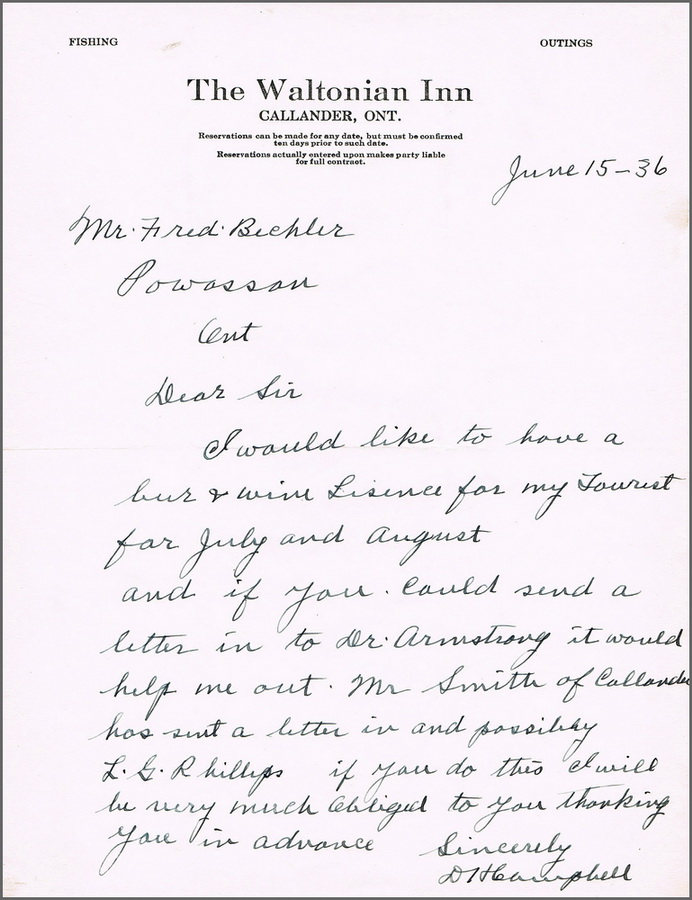 FISHING OUTINGS
The Waltonian Inn
CALLANDER, ONT.
Reservations can be made for any date, but must be confirmed
ten days prior to such date.
Reservations actually entered upon makes party liable
for full contract.
June 15-36
Mr. Fred Bechler
Powassan
Ont
Dear Sir
I would like to have a
beer & wine Lisence for my Tourist
for July and August
and if you could send a
letter in to Dr. Armstrong it would
help me out. Mr Smith of Callander
has sent a letter in and possibley
L. G. Phillips if you do this I will
be very much Obliged to you thanking
you in advance Sincerely
D H Campbell